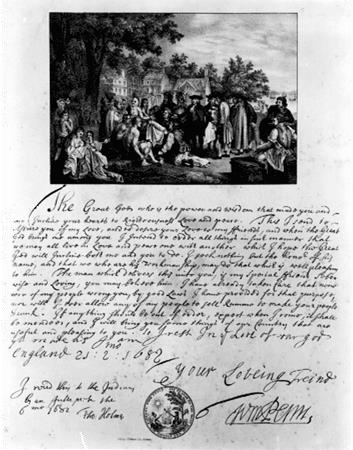 The Great God who is the power and wisdom that made you and
me Incline your hearts to Righteousness Love and peace. This I send to
Assure you of my Love, and to desire your Love to my friends, and when the Great
God brings me among you I Intend to order all things in such manner that
we may all live in Love and peace one with another which I hope the Great
God will Incline both me and you to do. I seek nothing but the honor of his
name, and that we who are his workmanship, may do that which is well pleasing
to him. The man which delivers this unto you, is my Special friend
wise and Loving, you may believe him. I have already taken care that none
of my people wrong you, by good Laws I have provided for that purpose,
nor will I ever allow any of my people to sell Rumme to make your people
Drunk. If anything should be out of order, expect when I come, it shall
be mended, and I will bring you some things of our Country that are
useful and pleasing to you. So I rest In ye Love of our god
yt made us
England 25: 2: 1682
Your Loveing Freind
I read this to the Indians
by an Interpreter the 6
mo 1682 Tho Holme
Wm Penn